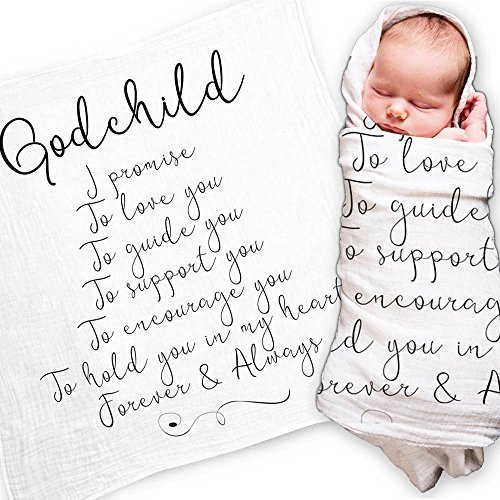 Godchild
I promise
To love you
To guide you
To support you
To encourage you
To hold you in my heart
Forever & Always
To love
To guide
To support
encourag
ld you in
orever & A